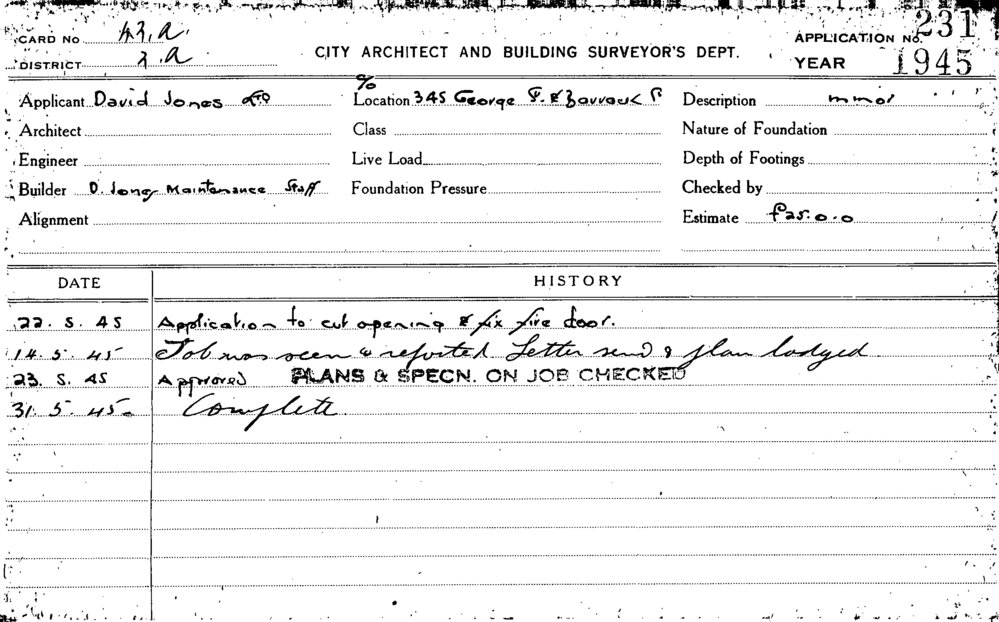 CARD NO.
APPLICATION NO. 231
DISTRICT 2.a
CITY ARCHITECT AND BUILDING SURVEYOR'S DEPT.
YEAR 1945
Applicant David Jones LTD
Location 345 George St. & Barrack St
Description minor
Architect
Class
Nature of Foundation
Engineer
Live Load
Depth of Footings
Builder D. Jones Maintenance Staff
Foundation Pressure
Checked by
Alignment
Estimate £25.0.0
DATE HISTORY
22. 5. 45 Application to cut opening & fix fire door.
14. 5. 45 Job was seen & reported. Letter send & plan lodged
23. 5. 45 Approved PLANS & SPECN. ON JOB CHECKED
31. 5. 45. Complete.